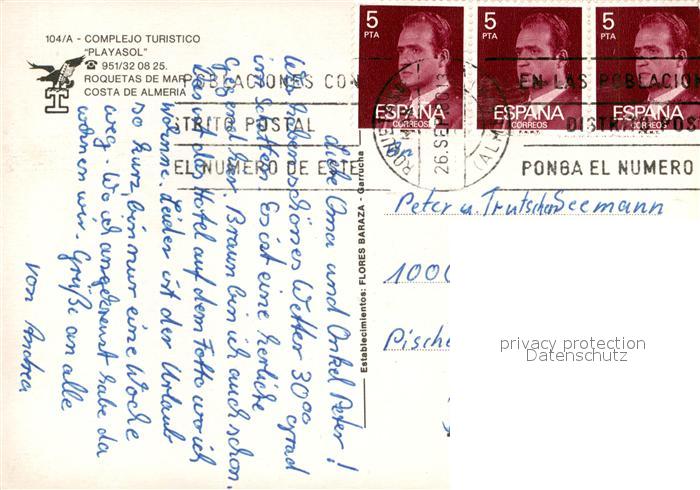 104/A - COMPLEJO TURISTICO
"PLAYASOL"
☎ 951/32 08 25.
ROQUETAS DE MAR
COSTA DE ALMERIA
5
PTA
ESPAÑA
CORREOS
5
PTA
ESPAÑA
CORREOS
5
PTA
ESPAÑA
CORREOS
POBLACIONES CON
STRITO POSTAL
EL NUMERO DE ESTE
26.SE
(ALM
EN LAS POBLACION
DIST POS
PONGA EL NUMERO
Liebe Oma und Onkel Peter!
Wir haben schönes Wetter 30oo grad
im Schatten. Es ist eine herliche
Gegend hier. Braun bin ich auch schon.
Das ist das Hotel auf dem Fotto wo ich
wohnne. Leider ist der Urlaub
so kurz, bin nur eine Woche
weg. Wo ich angekreuzt habe da
wohnen wir. Grüße an alle
von Andrea
Establecimientos: FLORES BARAZA - Garrucha
Peter u. Trutschen Seemann
1000
Pische
privacy protection
Datenschutz